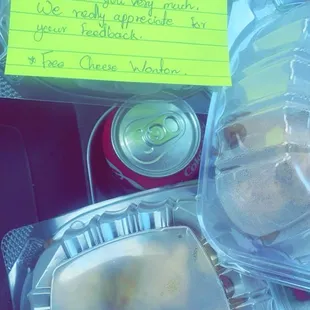 you very much.
We really appreciate for
your feedback.
* Free Cheese Wonton.